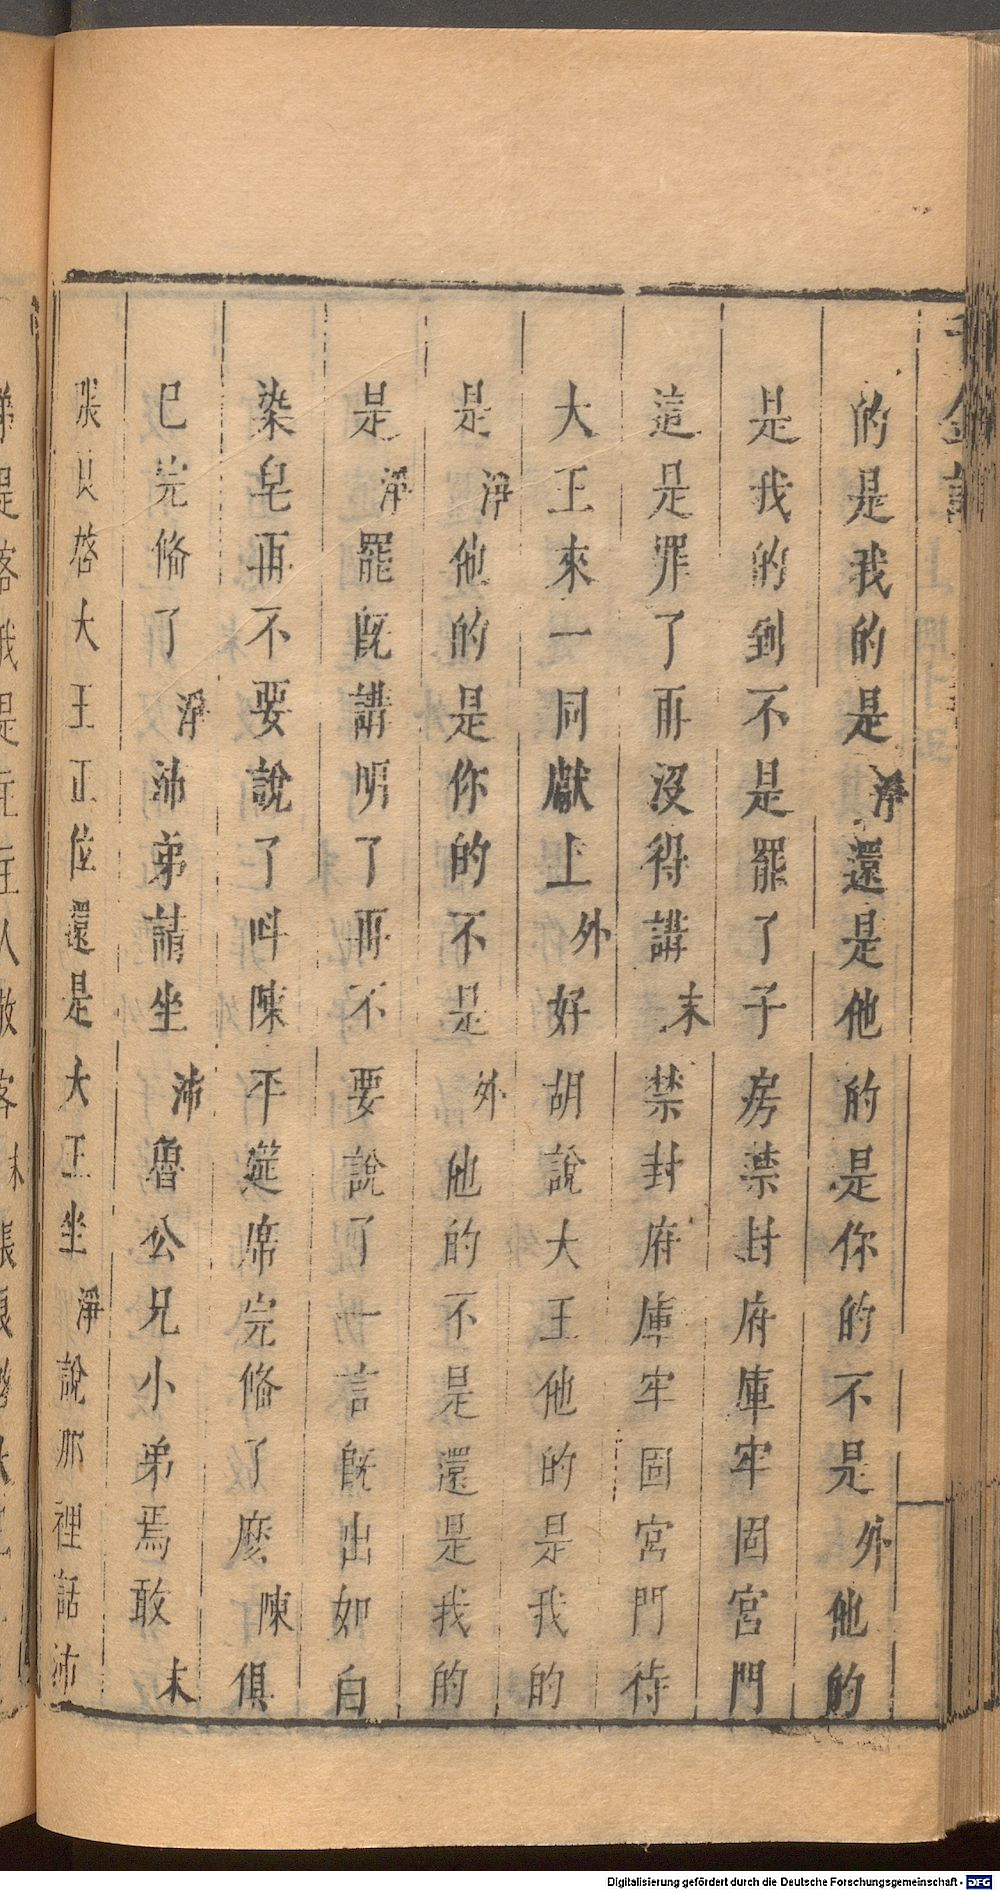 千金記
的是我的是淨還是他的是你的不是外他的
是我的到不是罷了子房禁封府庫牢固宮門
這是罪了再沒得講末禁封府庫牢固宮門待
大王來一同獻上外好胡說大王他的是我的
是淨他的是你的不是外他的不是還是我的
是淨罷既講明了再不要說了一言既出如白
染皂再不要說了呌陳平筵席完俻了麽陳俱
已完俻了淨沛弟請坐沛魯公兄小弟焉敢末
張良啓大王正位還是大王坐淨說那裡話沛
Digitalisierung gefördert durch die Deutsche Forschungsgemeinschaft - DFG